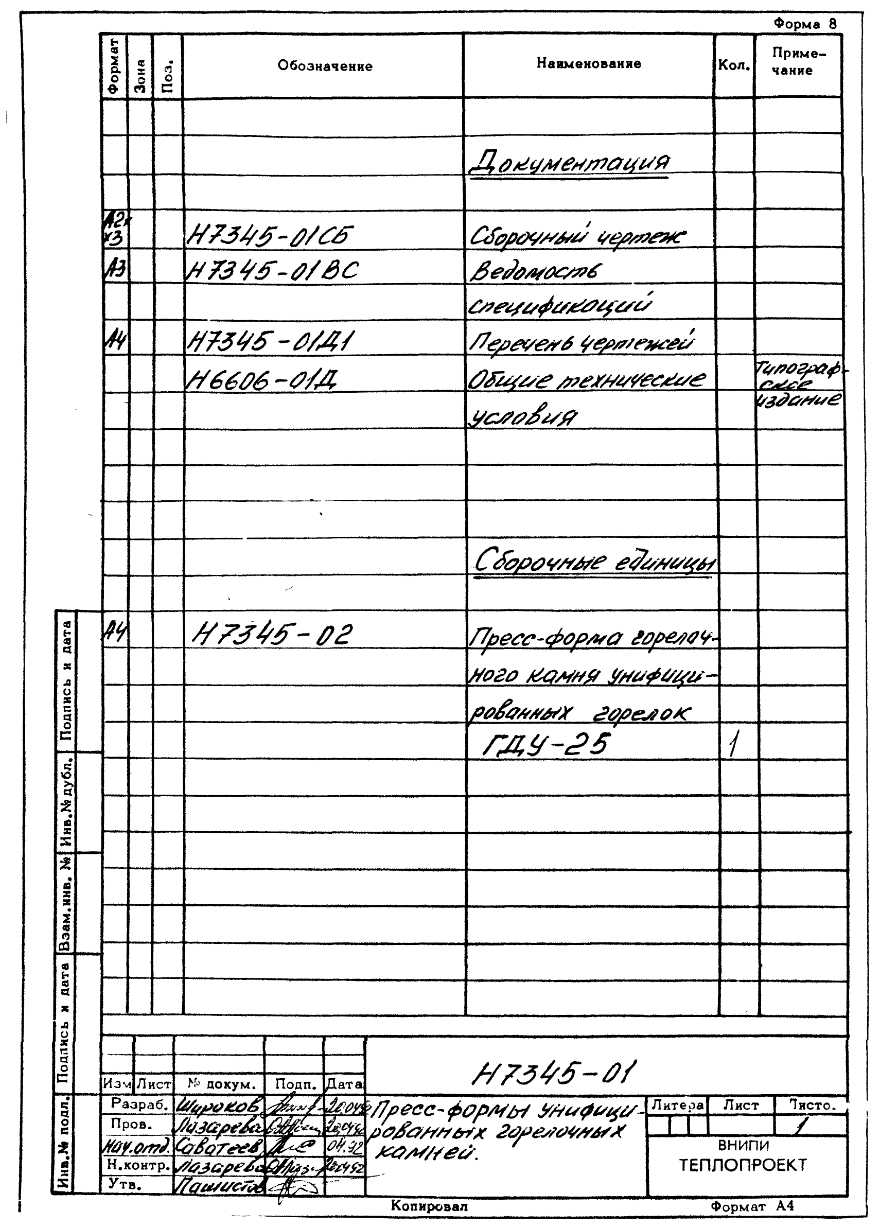 Форма 8
Формат Зона Поз. Обозначение Наименование Кол. Приме-
чание
Документация
А2х
х3 Н7345-01СБ Сборочный чертеж
А3 Н7345-01ВС Ведомость
спецификаций
А4 Н7345-01Д1 Перечень чертежей
Н6606-01Д Общие технические Типограф-
ское
условия издание
Сборочные единицы
А4 Н7345-02 Пресс-форма горелоч-
ного камня унифици-
рованных горелок
ГДУ-25 1
Подпись и дата
Инв.№ дубл.
Взам.инв. №
Подпись и дата
Инв.№ подл.
Н7345-01
Изм Лист № докум. Подп. Дата
Разраб. Широков 20.04.92
Пров. Лазарева 20.04.92
Нач.отд. Саватеев 04.92
Н.контр. Лазарева 20.04.92
Утв. Пашистов
Пресс-формы унифици-
рованных горелочных
камней.
Литера Лист Листо.
1
ВНИПИ
ТЕПЛОПРОЕКТ
Копировал Формат А4